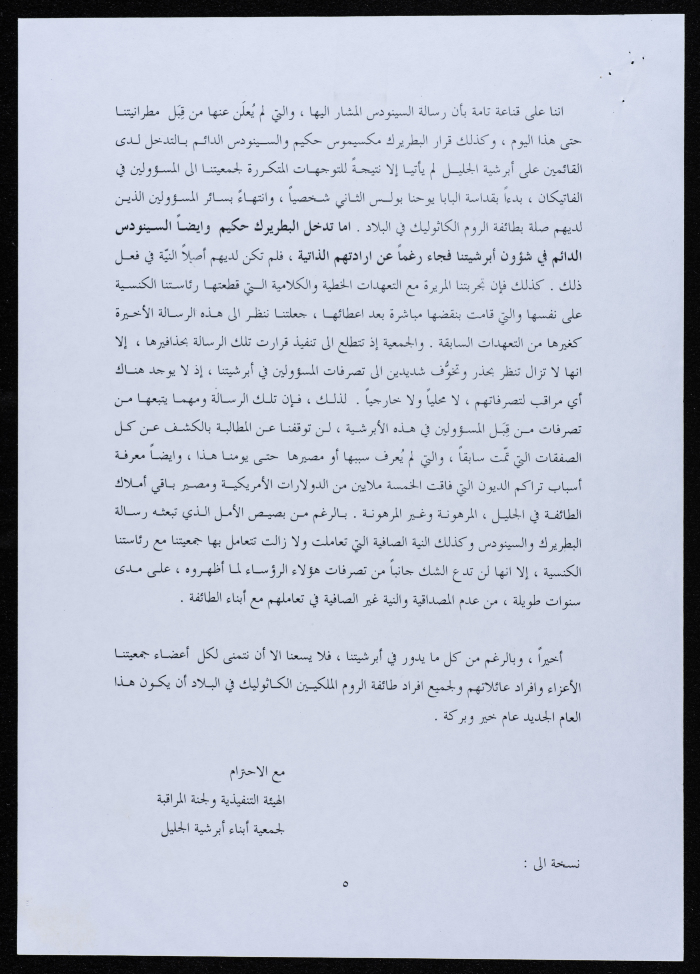 اننا على قناعة تامة بأن رسالة السينودس المشار اليها ، والتي لم يُعلَن عنها من قِبَل مطرانيتنا
حتى هذا اليوم ، وكذلك قرار البطريرك مكسيموس حكيم والسينودس الدائم بالتدخل لدى
القائمين على أبرشية الجليل لم يأتيا إلا نتيجةً للتوجهات المتكررة لجمعيتنا الى المسؤولين في
الفاتيكان ، بدءاً بقداسة البابا يوحنا بولس الثاني شخصياً ، وانتهاءً بسائر المسؤولين الذين
لديهم صلة بطائفة الروم الكاثوليك في البلاد . اما تدخل البطريرك حكيم وايضاً السينودس
الدائم في شؤون أبرشيتنا فجاء رغماً عن ارادتهم الذاتية ، فلم تكن لديهم أصلاً النيّة في فعل
ذلك . كذلك فإن تجربتنا المريرة مع التعهدات الخطية والكلامية التي قطعتها رئاستنا الكنسية
على نفسها والتي قامت بنقضها مباشرة بعد اعطائها ، جعلتنا ننظر الى هذه الرسالة الأخيرة
كغيرها من التعهدات السابقة . والجمعية إذ تتطلع الى تنفيذ قرارت تلك الرسالة بحذافيرها ، إلا
انها لا تزال تنظر بحذر وتخوُّف شديدين الى تصرفات المسؤولين في أبرشيتنا ، إذ لا يوجد هناك
أي مراقب لتصرفاتهم ، لا محلياً ولا خارجياً . لذلك ، فإن تلك الرسالة ومهما يتبعها من
تصرفات من قِبَل المسؤولين في هذه الأبرشية ، لن توقفنا عن المطالبة بالكشف عن كل
الصفقات التي تمّت سابقاً ، والتي لم يُعرف سببها أو مصيرها حتى يومنا هذا ، وايضاً معرفة
أسباب تراكم الديون التي فاقت الخمسة ملايين من الدولارات الأمريكية ومصير باقي أملاك
الطائفة في الجليل ، المرهونة وغير المرهونة . بالرغم من بصيص الأمل الذي تبعثه رسالة
البطريرك والسينودس وكذلك النية الصافية التي تعاملت ولا زالت تتعامل بها جمعيتنا مع رئاستنا
الكنسية ، إلا انها لن تدع الشك جانباً من تصرفات هؤلاء الرؤساء لما أظهروه ، على مدى
سنوات طويلة ، من عدم المصداقية والنية غير الصافية في تعاملهم مع أبناء الطائفة .
أخيراً ، وبالرغم من كل ما يدور في أبرشيتنا ، فلا يسعنا الا أن نتمنى لكل أعضاء جمعيتنا
الأعزاء وافراد عائلاتهم ولجميع افراد طائفة الروم الملكيين الكاثوليك في البلاد أن يكون هذا
العام الجديد عام خير وبركة .
مع الاحترام
الهيئة التنفيذية ولجنة المراقبة
لجمعية أبناء أبرشية الجليل
نسخة الى :
٥